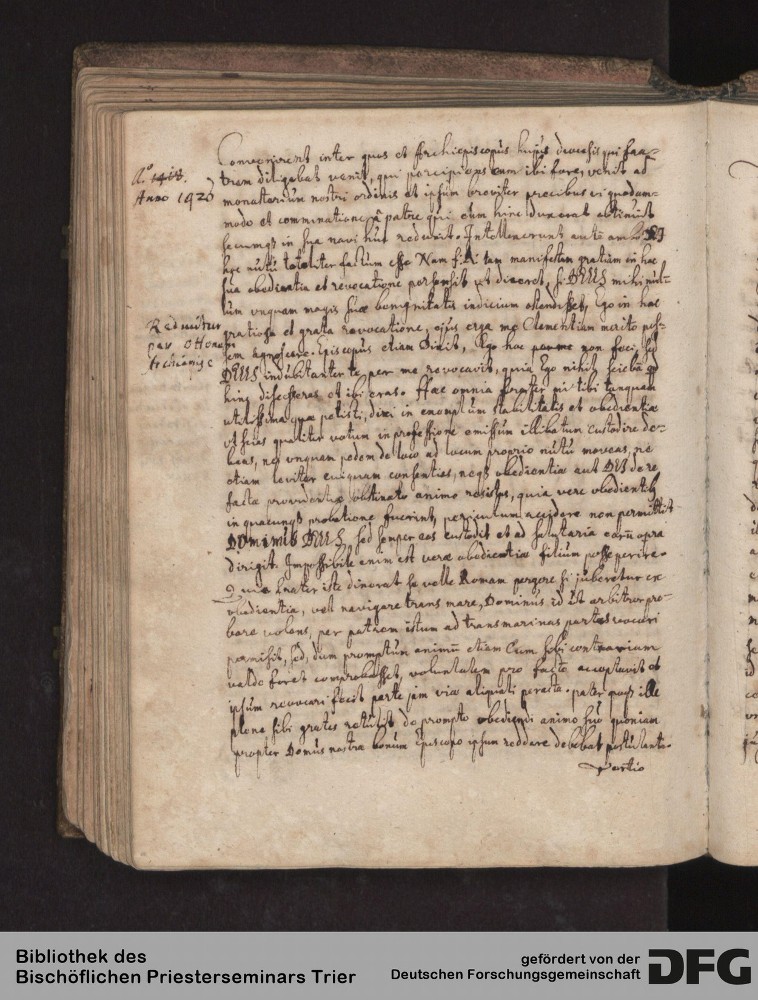 Convenirent inter quos et Archiepiscopus hujus diocesis qui fra-
trem diligebat venit, qui percipiens eum ibi fore, venit ad
monasterium nostri ordinis et ipsum breviter precibus et quodam-
modo et comminatione a patre qui eum hinc duxerat obtinuit
secumq; in sua navi huc reduxit. Intellexerunt autem ambo DEI
hoc nutu totaliter factum esse Nam fr: tam manifestam gratiam in hac
sua obedientia et revocatione persensit ut diceret, si DEUS mihi nul-
lum unquam magis suae benignitatis indicium ostendisset, Ego in hac
gratiosa et grata revocatione, ejus erga me Clementiam merito pos-
sem agnoscere. Episcopus etiam dixit, Ego hoc non feci, sed
DEUS indubitanter te per me revocavit, quia Ego nihil sciebam qd
hinc discesseras et ibi eras. Haec omnia frater mi tibi tanquam
utilissima quae petisti, dixi in exemplum stabilitatis et obedientiae
ut scias qualiter votum in professione emissum illibatum custodire de-
beas, nec unquam pedem de loco ad locum proprio nutu moveas, ne
etiam leviter cuiquam consentias, neq; obedientiae aut DEI de te
factae providentiae obstinato animo resistas, quia vere obedientib;
in quacunq; probatione fuerint, periculum accidere non permittit
DOMINUS DEUS, sed semper eos custodit et ad salutaria eorum opra
dirigit. Impossibile enim est verae obedientiae filium posse perire.
Quia frater iste dixerat se velle Romam pergere si juberetur ex
obedientia, vel navigare trans mare, Dominus id ut arbitror pro-
bare volens, per patrem istum ad transmarinas partes vocari
permisit, sed, dum promptum animum etiam Cum sibi contrarium
valde foret comprobasset, voluntatem pro facto acceptavit et
ipsum revocari fecit parte jam viae aliquali peracta. pater quoq; ille
plene sibi grates retulit de prompto obediendi animo suo quoniam
propter Domus nostrae bonum Episcopo ipsum reddere debebat postulanti.
Portio
A.o 1418.
Anno 1423
Reducitur
par Ottonem
Archiepisc
Bibliothek des
Bischöflichen Priesterseminars Trier
gefördert von der
Deutschen Forschungsgemeinschaft
DFG